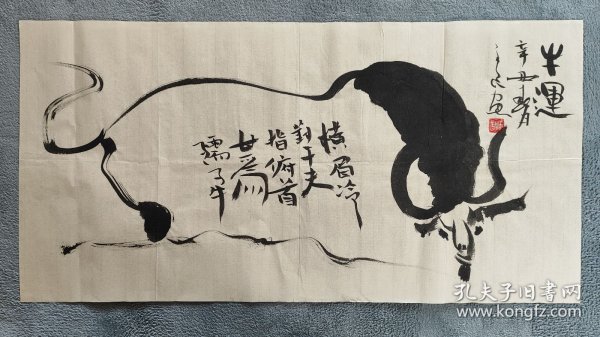 牛運
辛丑
横眉冷
對千夫
指俯首
甘爲
孺子牛
孔夫子旧書网
www.kongfz.com